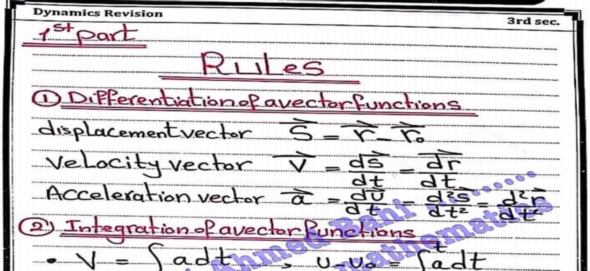 Dynamics Revision 3rd sec.
1st part
Rules
① Differentiation of a vector functions
displacement vector S⃗ = r⃗ - r⃗₀
Velocity vector V⃗ = dS⃗/dt = dr⃗/dt
Acceleration vector a⃗ = dv⃗/dt = d²s⃗/dt² = d²r⃗/dt²
② Integration of a vector functions
• V = ∫ a dt , v - v₀ = ∫ᵗ a dt
Ahmed
Mathematics